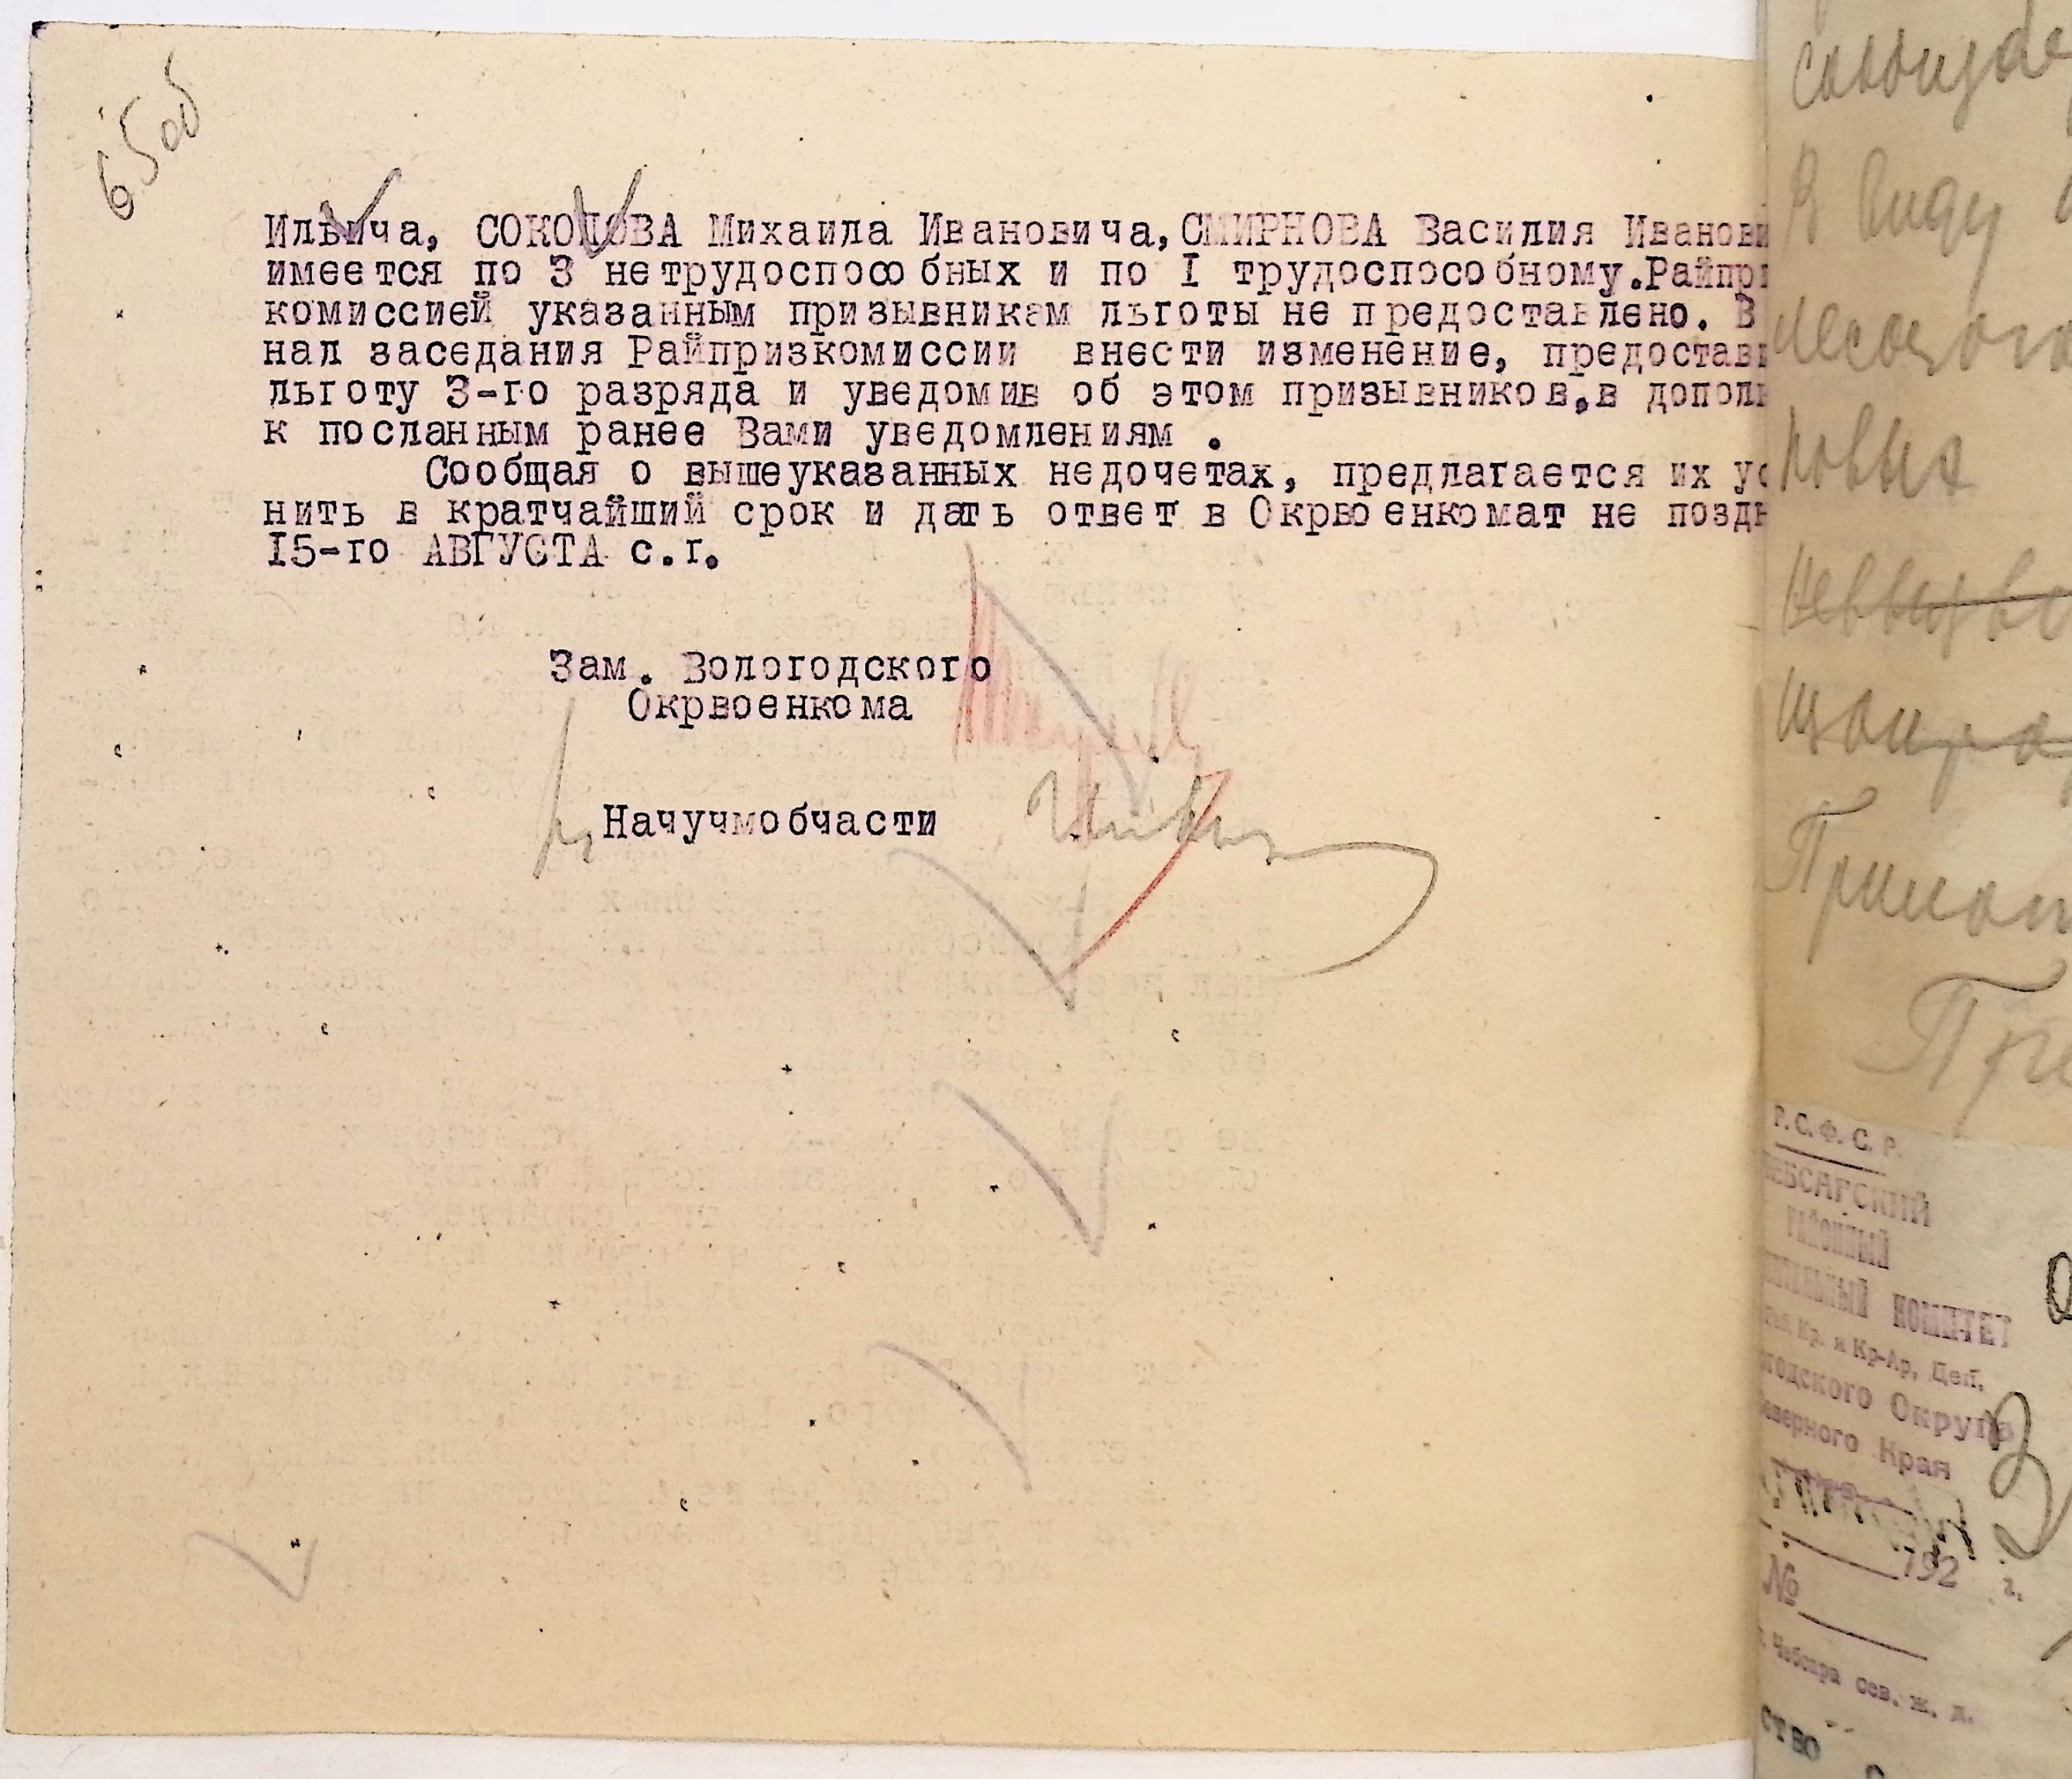 65 об
Ильича, СОКОЛОВА Михаила Ивановича, СМИРНОВА Василия Иванови
имеется по 3 нетрудоспособных и по I трудоспособному.Райпри
комиссией указанным призывникам льготы не предоставлено. В
нал заседания Райпризкомиссии внести изменение, предостави
льготу 3-го разряда и уведомив об этом призывников,в дополн
к посланным ранее Вами уведомлениям .
Сообщая о вышеуказанных недочетах, предлагается их ус
нить в кратчайший срок и дать ответ в Окрвоенкомат не поздн
15-го АВГУСТА с.г.
Зам. Вологодского
Окрвоенкома
Начучмобчасти
В виду
Р. С. Ф. С. Р.
ЕБСАРСКИЙ
РАЙОННЫЙ
ТЕЛЬНЫЙ КОМИТЕТ
Раб. Кр. и Кр-Ар. Деп.
огодского Округа
еверного Края
192 г.
№
Чебсара Сев. ж. д.
СТВО